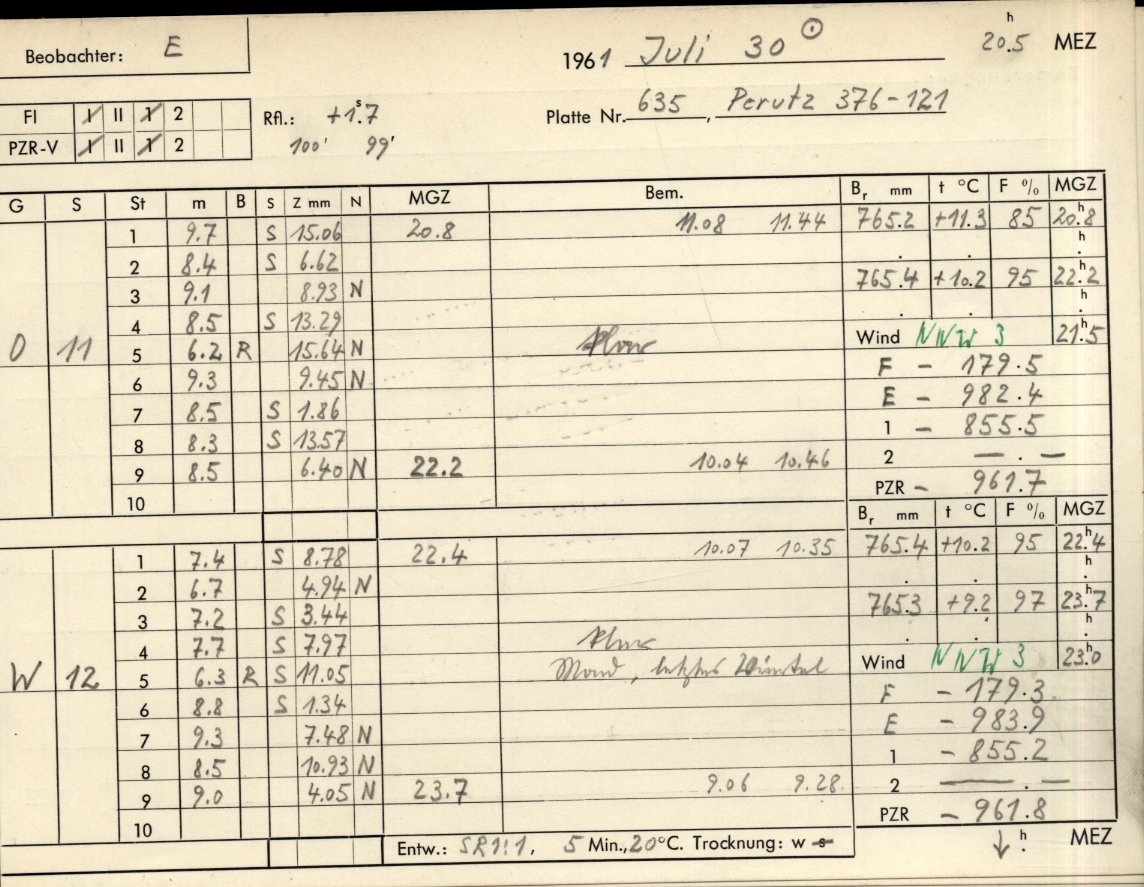 Beobachter: E 1961 Juli 30 ☉ 20.5 h MEZ
FI I II 1 2 Rfl.: +1.7 s Platte Nr. 635, Perutz 376-121
PZR-V I II 1 2 100' 99'
G S St m B S Z mm N MGZ Bem. Br mm t °C F % MGZ
1 9.7 S 15.06 20.8 11.08 11.44 765.2 +11.3 85 20.8 h
2 8.4 S 6.62 . . . h
3 9.1 8.93 N 765.4 +10.2 95 22.2 h
4 8.5 S 13.29 . . . h
O 11 5 6.2 B R 15.64 N klar Wind NNW 3 21.5 h
6 9.3 9.45 N F - 179.5
7 8.5 S 1.86 E - 982.4
8 8.3 S 13.57 1 - 855.5
9 8.5 6.40 N 22.2 10.04 10.46 2 — . —
10 PZR - 961.7
Br mm t °C F % MGZ
1 7.4 S 8.78 22.4 10.07 10.35 765.4 +10.2 95 22.4 h
2 6.7 4.94 N . . . h
3 7.2 S 3.44 765.3 +9.2 97 23.7 h
4 7.7 S 7.97 klar . . . h
W 12 5 6.3 R S 11.05 Mond, letztes Viertel Wind NNW 3 23.0 h
6 8.8 S 1.34 F - 179.3
7 9.3 7.48 N E - 983.9
8 8.5 10.93 N 1 - 855.2
9 9.0 4.05 N 23.7 9.06 9.28 2 — . —
10 PZR - 961.8
Entw.: SR1:1, 5 Min., 20°C. Trocknung: w s ↓ . h MEZ